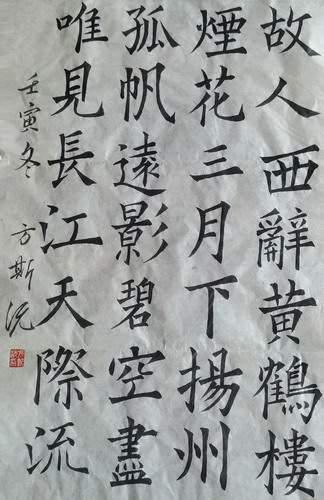 故人西辭黃鶴樓
煙花三月下揚州
孤帆遠影碧空盡
唯見長江天際流
壬寅冬 方斯沅